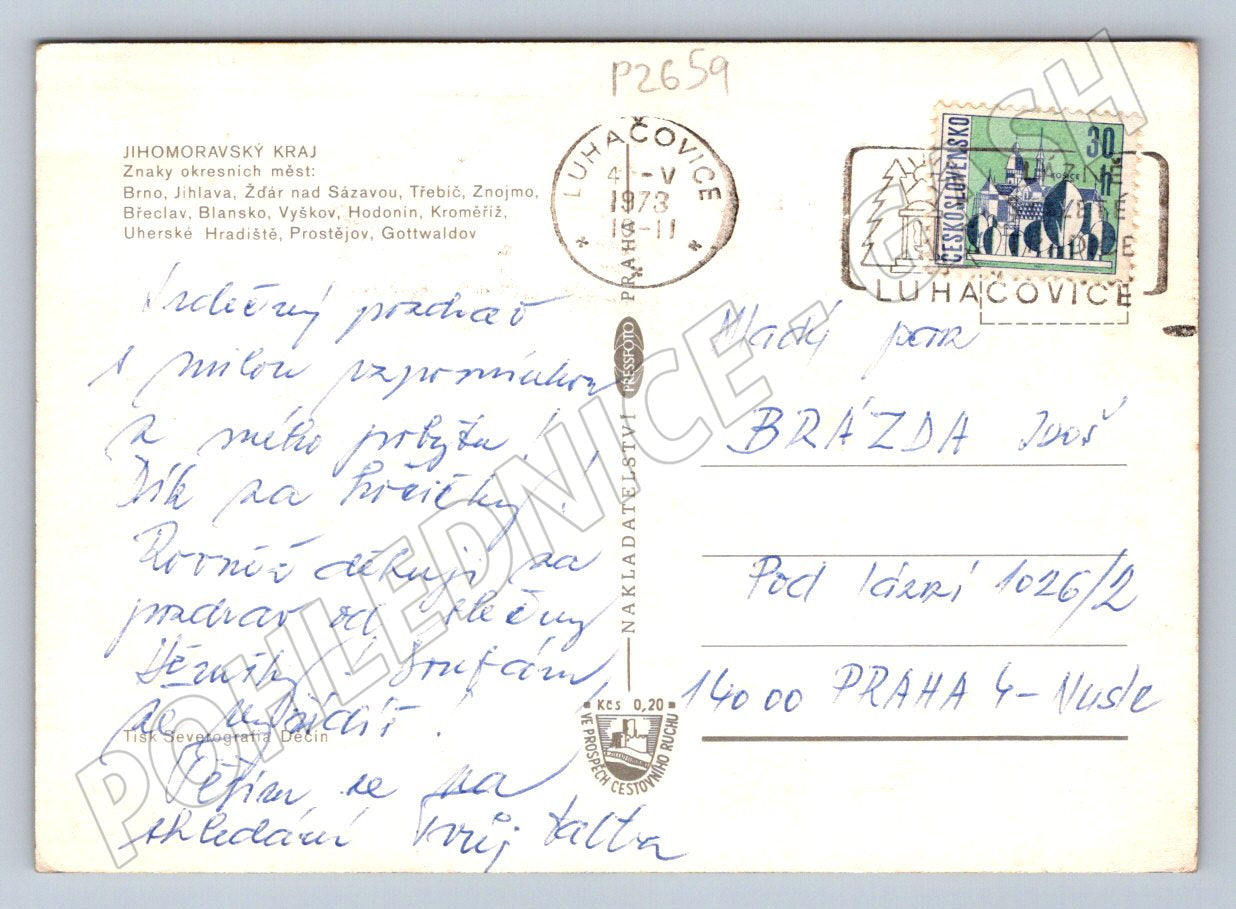 P2659
JIHOMORAVSKÝ KRAJ
Znaky okresních měst:
Brno, Jihlava, Žďár nad Sázavou, Třebíč, Znojmo,
Břeclav, Blansko, Vyškov, Hodonín, Kroměříž,
Uherské Hradiště, Prostějov, Gottwaldov
LUHAČOVICE
1978
ČESKOSLOVENSKO
30 h
KOŠICE
LÁZNĚ
LUHAČOVICE
Srdečný pozdrav
s milou vzpomínkou
z mého pobytu!
Dík za
Rovněž děkuji za
pozdrav od slečny
Doufám,
že
Těším se na
shledání Tvůj
Tisk Severografia Děčín
NAKLADATELSTVÍ PRESSFOTO PRAHA
Kčs 0,20
VE PROSPĚCH CESTOVNÍHO RUCHU
Mladý pan
BRÁZDA
Pod lázní 1026/2
14000 PRAHA 4 - Nusle
POHLEDNICE.CASH